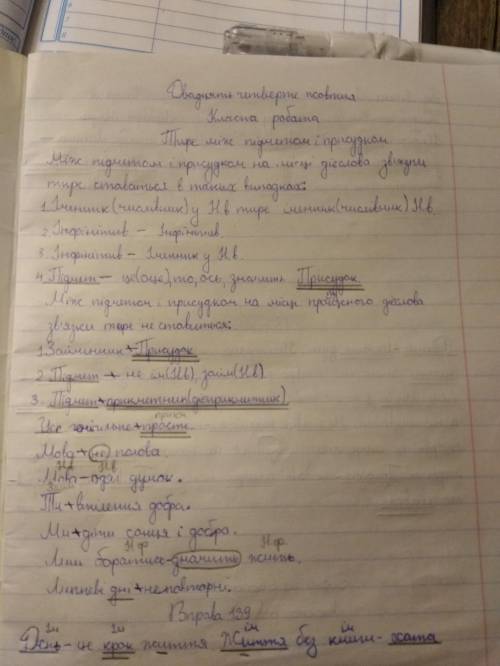 Двадцять четверте жовтня
Класна робота
Тире між підметом і присудком
Між підметом і присудком на місці дієслова звязки
тире ставиться в таких випадках:
1. Іменник (числівник) у Н.в тире іменник (числівник) Н.в.
2. Інфінітив – Інфінітив.
3. Інфінітив – Іменник у Н.в.
4. Підмет – це(оце), то, ось, значить Присудок.
Між підметом і присудком на місці дієслова
звязки тире не ставиться:
1. Займенник + Присудок
2. Підмет + не ім(Н.в), займ(Н.в)
3. Підмет + прикметник(дієприкметник)
прикм
Усе + прості.
Мова + не полова.
Н.в Н.в
Мова – одяг думок.
Ти + втілення добра.
Ми + діти сонця і добра.
Н.ф Н.ф
Лиш боротись – значить жить.
Липневі дні + неповторні.
Вправа 139
ім ім ім ім
День – це крок життя Життя без книги – хата